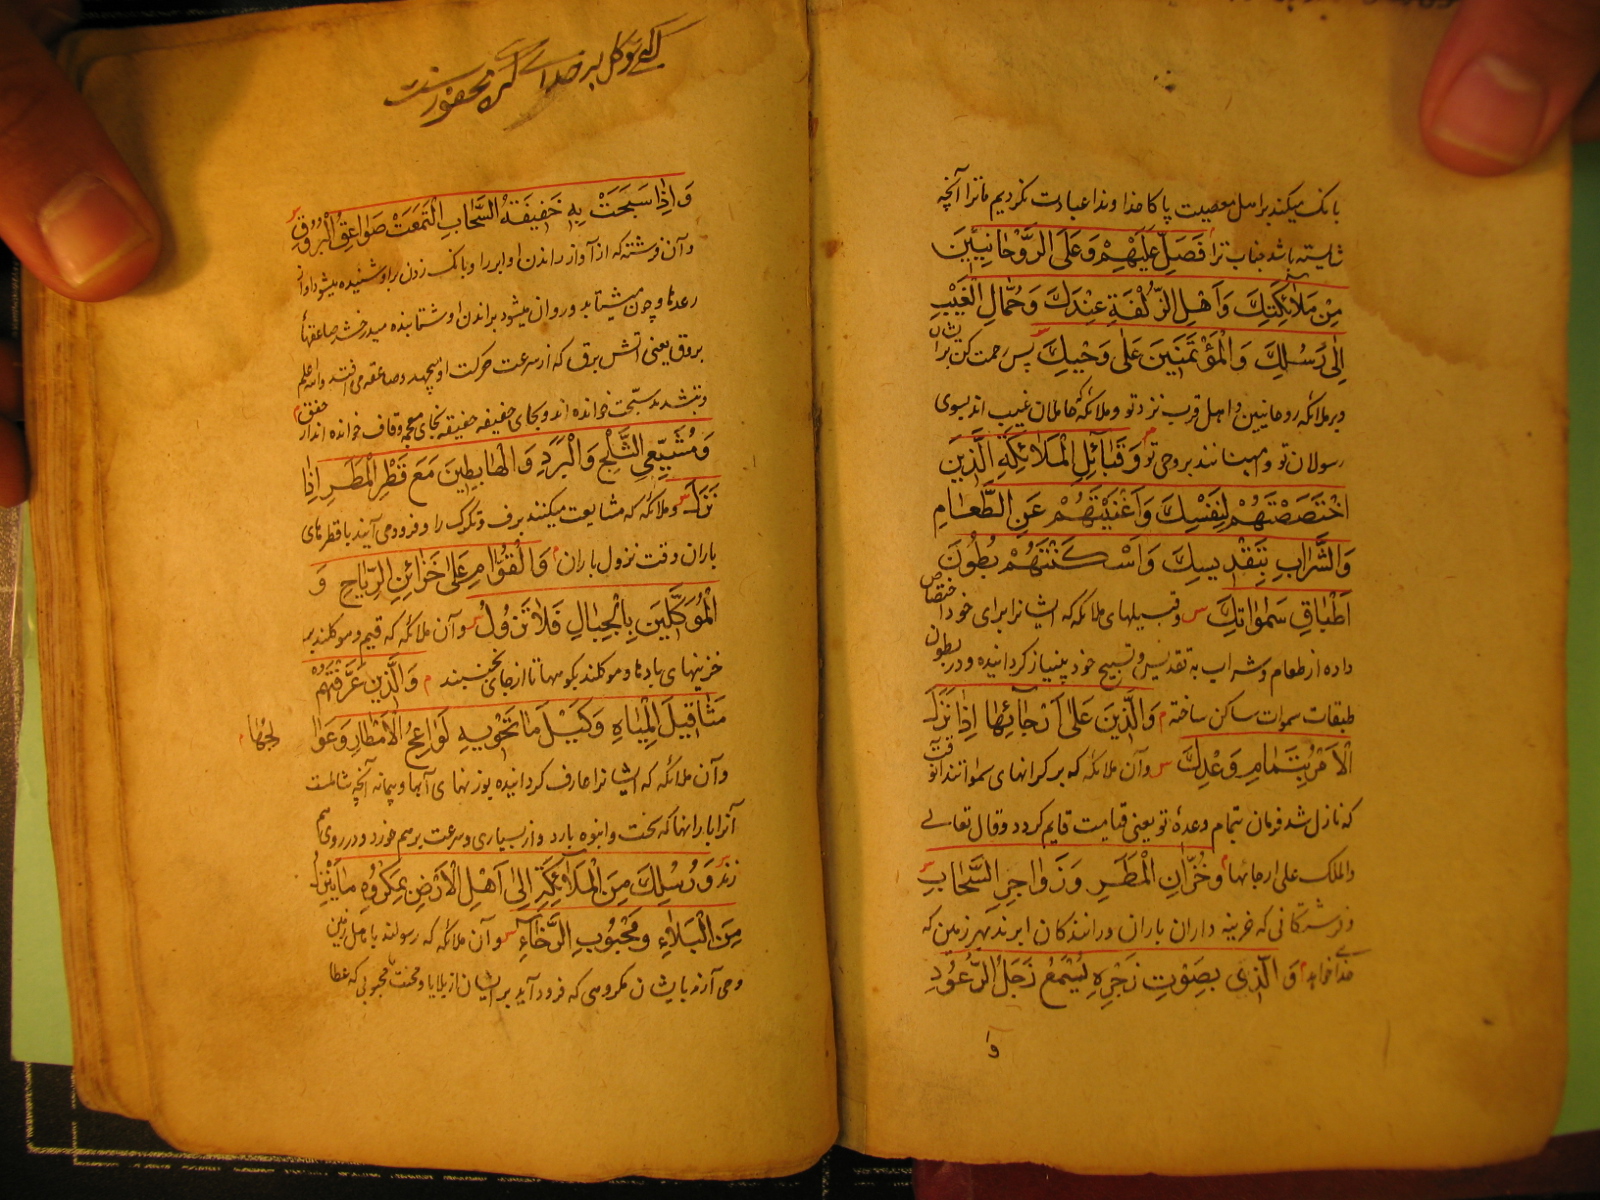 بانک میکند بر اهل معصیت پاکا خداوندا عبادت نکردیم ما ترا آنچه
شایسته باشد جناب ترا فَصَلِّ عَلَیْهِمْ وَعَلَی الرَّوْحَانِیِّینَ
مِنْ مَلَائِکَتِكَ وَاَهْلِ الزُّلْفَةِ عِنْدَكَ وَحُمَّالِ الْغَیْبِ
اِلٰی رُسُلِكَ وَالْمُؤْتَمَنِینَ عَلٰی وَحْیِكَ پس رحمت کن بر ایشان
و بر ملائکه روحانیین و اهل قرب نزد تو و ملائکه حاملان غیب اند بسوی
رسولان تو و امینانند بر وحی تو وَقَبَائِلِ الْمَلَائِکَةِ الَّذِینَ
اخْتَصَصْتَهُمْ لِنَفْسِكَ وَاَغْنَیْتَهُمْ عَنِ الطَّعَامِ
وَالشَّرَابِ بِتَقْدِیسِكَ وَاَسْکَنْتَهُمْ بُطُونَ
اَطْبَاقِ سَمٰوَاتِكَ و قبیلهای ملائکه که ایشانرا برای خود اختصاص
داده از طعام و شراب به تقدیس و تسبیح خود بینیاز کردانیده و در بطون
طبقات سموات ساکن ساخته وَالَّذِینَ عَلٰی اَرْجَائِهَا اِذَا نَزَلَ
الْاَمْرُ بِتَمَامِ وَعْدِكَ و آن ملائکه که بر کرانهای سمواتند
که نازل شد فرمان بتمام وعدهٔ تو یعنی قیامت قایم کردد و قال تعالی
والملک علی ارجائها وَخُزَّانِ الْمَطَرِ وَزَوَاجِرِ السَّحَابِ
و فرشتکانی که خزینه داران باران و رانندکان ابرند بهر زمین که
خدا خواهد وَالَّذِی بِصَوْتِ زَجْرِهِ یُسْمَعُ زَجَلُ الرُّعُودِ
و
الهی توکل بر خدای
وَاِذَا سَبَحَتْ بِهِ خَفِیفَةُ السَّحَابِ الْتَمَعَتْ صَوَاعِقُ الْبُرُوقِ
و آن فرشته که از آواز راندن او ابر را و بانک زدن بر او شنیده میشود آواز
رعدها و چون میشتابد و روان میشود براندن او شتابنده میدرخشد صاعقهای
بروق یعنی آتش برق که از سرعت حرکت او میجهد و صاعقه می افتد والله اعلم
و بتشدید سبّحت خوانده اند و بجای خفیفه حفیفه بحای مهمله و قاف خوانده اند از حقق
وَمُشَیِّعِی الثَّلْجِ وَالْبَرَدِ وَالْهَابِطِینَ مَعَ قَطْرِ الْمَطَرِ اِذَا
نَزَلَ و ملائکه که مشایعت میکنند برف و تکرک را و فرود می آیند با قطرهای
باران وقت نزول باران وَالْقُوَّامِ عَلٰی خَزَائِنِ الرِّیَاحِ وَ
الْمُوَکَّلِینَ بِالْجِبَالِ فَلَا تَزُولُ و آن ملائکه که قیم و موکلند بر
خزینهای بادها و موکلند بکوهها تا از جای نجنبند وَالَّذِینَ عَرَّفْتَهُمْ
مَثَاقِیلَ الْمِیَاهِ وَکَیْلَ مَا تَحْوِیهِ لَوَاعِجُ الْاَمْطَارِ وَعَوَا
لِجُهَا
و آن ملائکه که ایشانرا عارف کردانیده بوزنهای آبها و پیمانه آنچه شاملست
آنرا بارانها که سخت و انبوه بارد و از بسیاری و سرعت بر هم خورد و در روی هم
زند وَرُسُلِكَ مِنَ الْمَلَائِکَةِ اِلٰی اَهْلِ الْاَرْضِ بِمَکْرُوهِ مَا یَنْزِلُ
مِنَ الْبَلَاءِ وَمَحْبُوبِ الرَّخَاءِ و آن ملائکه که رسولند باهل زمین
و می آرند بایشان مکروهی که فرود آید بر ایشان از بلایا و محنت محبوبی که عطا